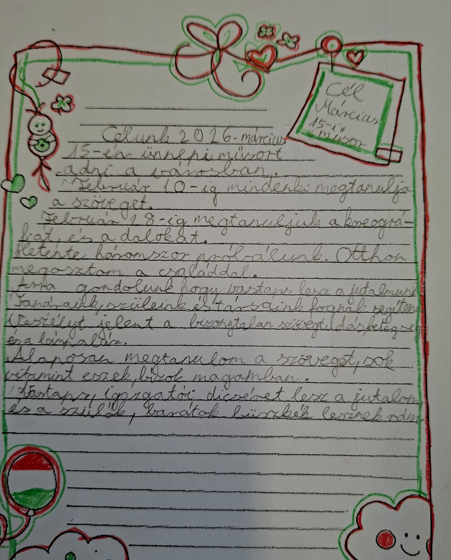 Cél
Március
15-i
műsor
Célunk 2026. március
15-én ünnepi műsort
adni a városban.
Február 10-ig mindenki megtanulja
a szöveget.
Február 18-ig megtanuljuk a koreográ-
fiát, és a dalokat.
Hetente háromszor próbálunk. Otthon
megosztom a családdal.
Arra gondolunk hogy vastaps lesz a jutalmunk
Tanáraink, szüleink és társaink fognak segíteni
Veszélyt jelent a bizonytalan szövegtudás, betegség
és a lámpaláz.
Alaposan megtanulom a szöveget, sok
vitamint eszek, bízok magamban.
Vastaps, igazgatói dicséret lesz a jutalom
és a szülők, barátok büszkék lesznek rám.